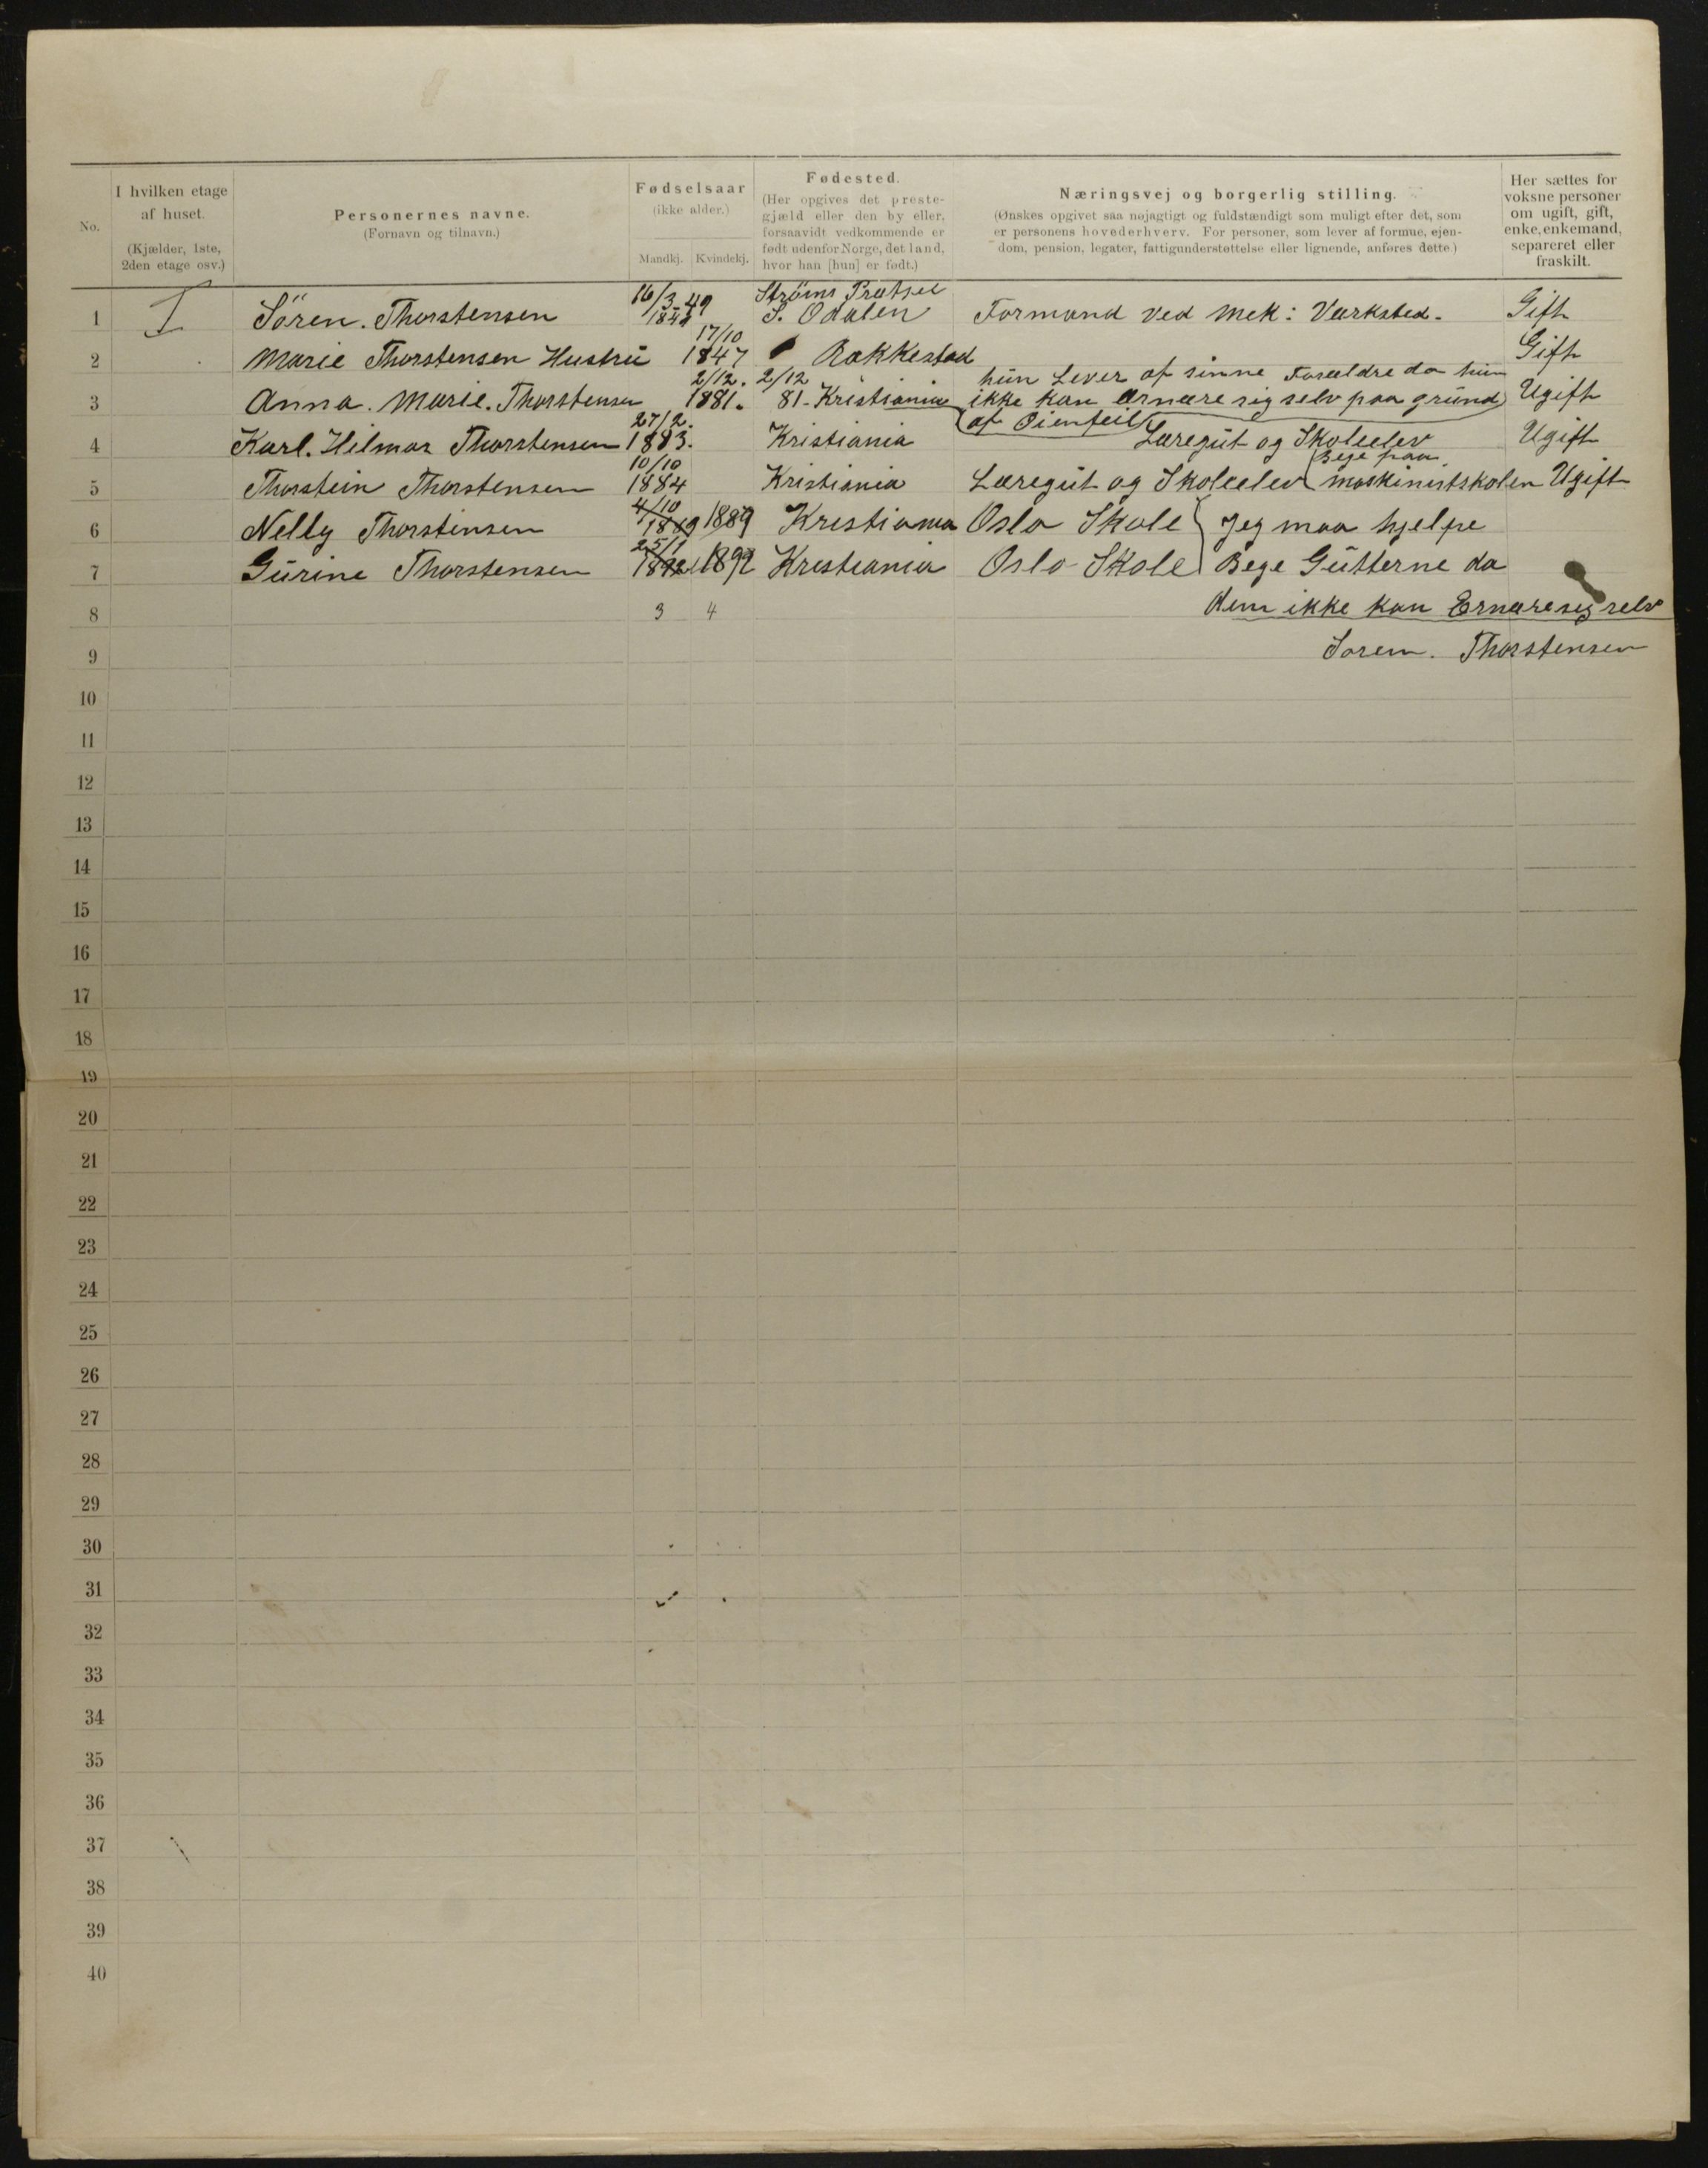 No.
I hvilken etage
af huset.
(Kjælder, 1ste,
2den etage osv.)
Personernes navne.
(Fornavn og tilnavn.)
Fødselsaar
(ikke alder.)
Mandkj. Kvindekj.
Fødested.
(Her opgives det preste-
gjæld eller den by eller,
forsaavidt vedkommende er
født udenfor Norge, det land,
hvor han [hun] er født.)
Næringsvej og borgerlig stilling.
(Ønskes opgivet saa nøjagtigt og fuldstændigt som muligt efter det, som
er personens hovederhverv. For personer, som lever af formue, ejen-
dom, pension, legater, fattigunderstøttelse eller lignende, anføres dette.)
Her sættes for
voksne personer
om ugift, gift,
enke, enkemand,
separeret eller
fraskilt.
16/3 49 Ströms
1 I Sören. Thorstensen 1849 S. Odalen Formand ved Mek: Værksted. Gift
17/10
2 Marie Thorstensen Hustrü 1847 Rakkestad Gift
2/12. 2/12 hün Lever af sinne Forældre da hün
3 Anna. Marie. Thorstensen 1881. 81 - Kristiania ikke kan Ernære sig selv paa gründ Ugift
27/2. af Øienfeil
4 Karl. Hilmar Thorstensen 1883. Kristiania Læregüt og Skoleelev Ugift
10/10 Bege paa
5 Thorstein Thorstensen 1884 Kristiania Læregüt og Skoleelev maskinistskolen Ugift
4/10
6 Nelly Thorstensen 1889 1889 Kristiania Oslo Skole Jeg maa hjelpe
25/1
7 Gürine Thorstensen 1892 1892 Kristiania Oslo Skole Bege Gütterne da
8 3 4 dem ikke kan Ernære sig selv
9 Soren. Thorstensen
10
11
12
13
14
15
16
17
18
19
20
21
22
23
24
25
26
27
28
29
30
31
32
33
34
35
36
37
38
39
40